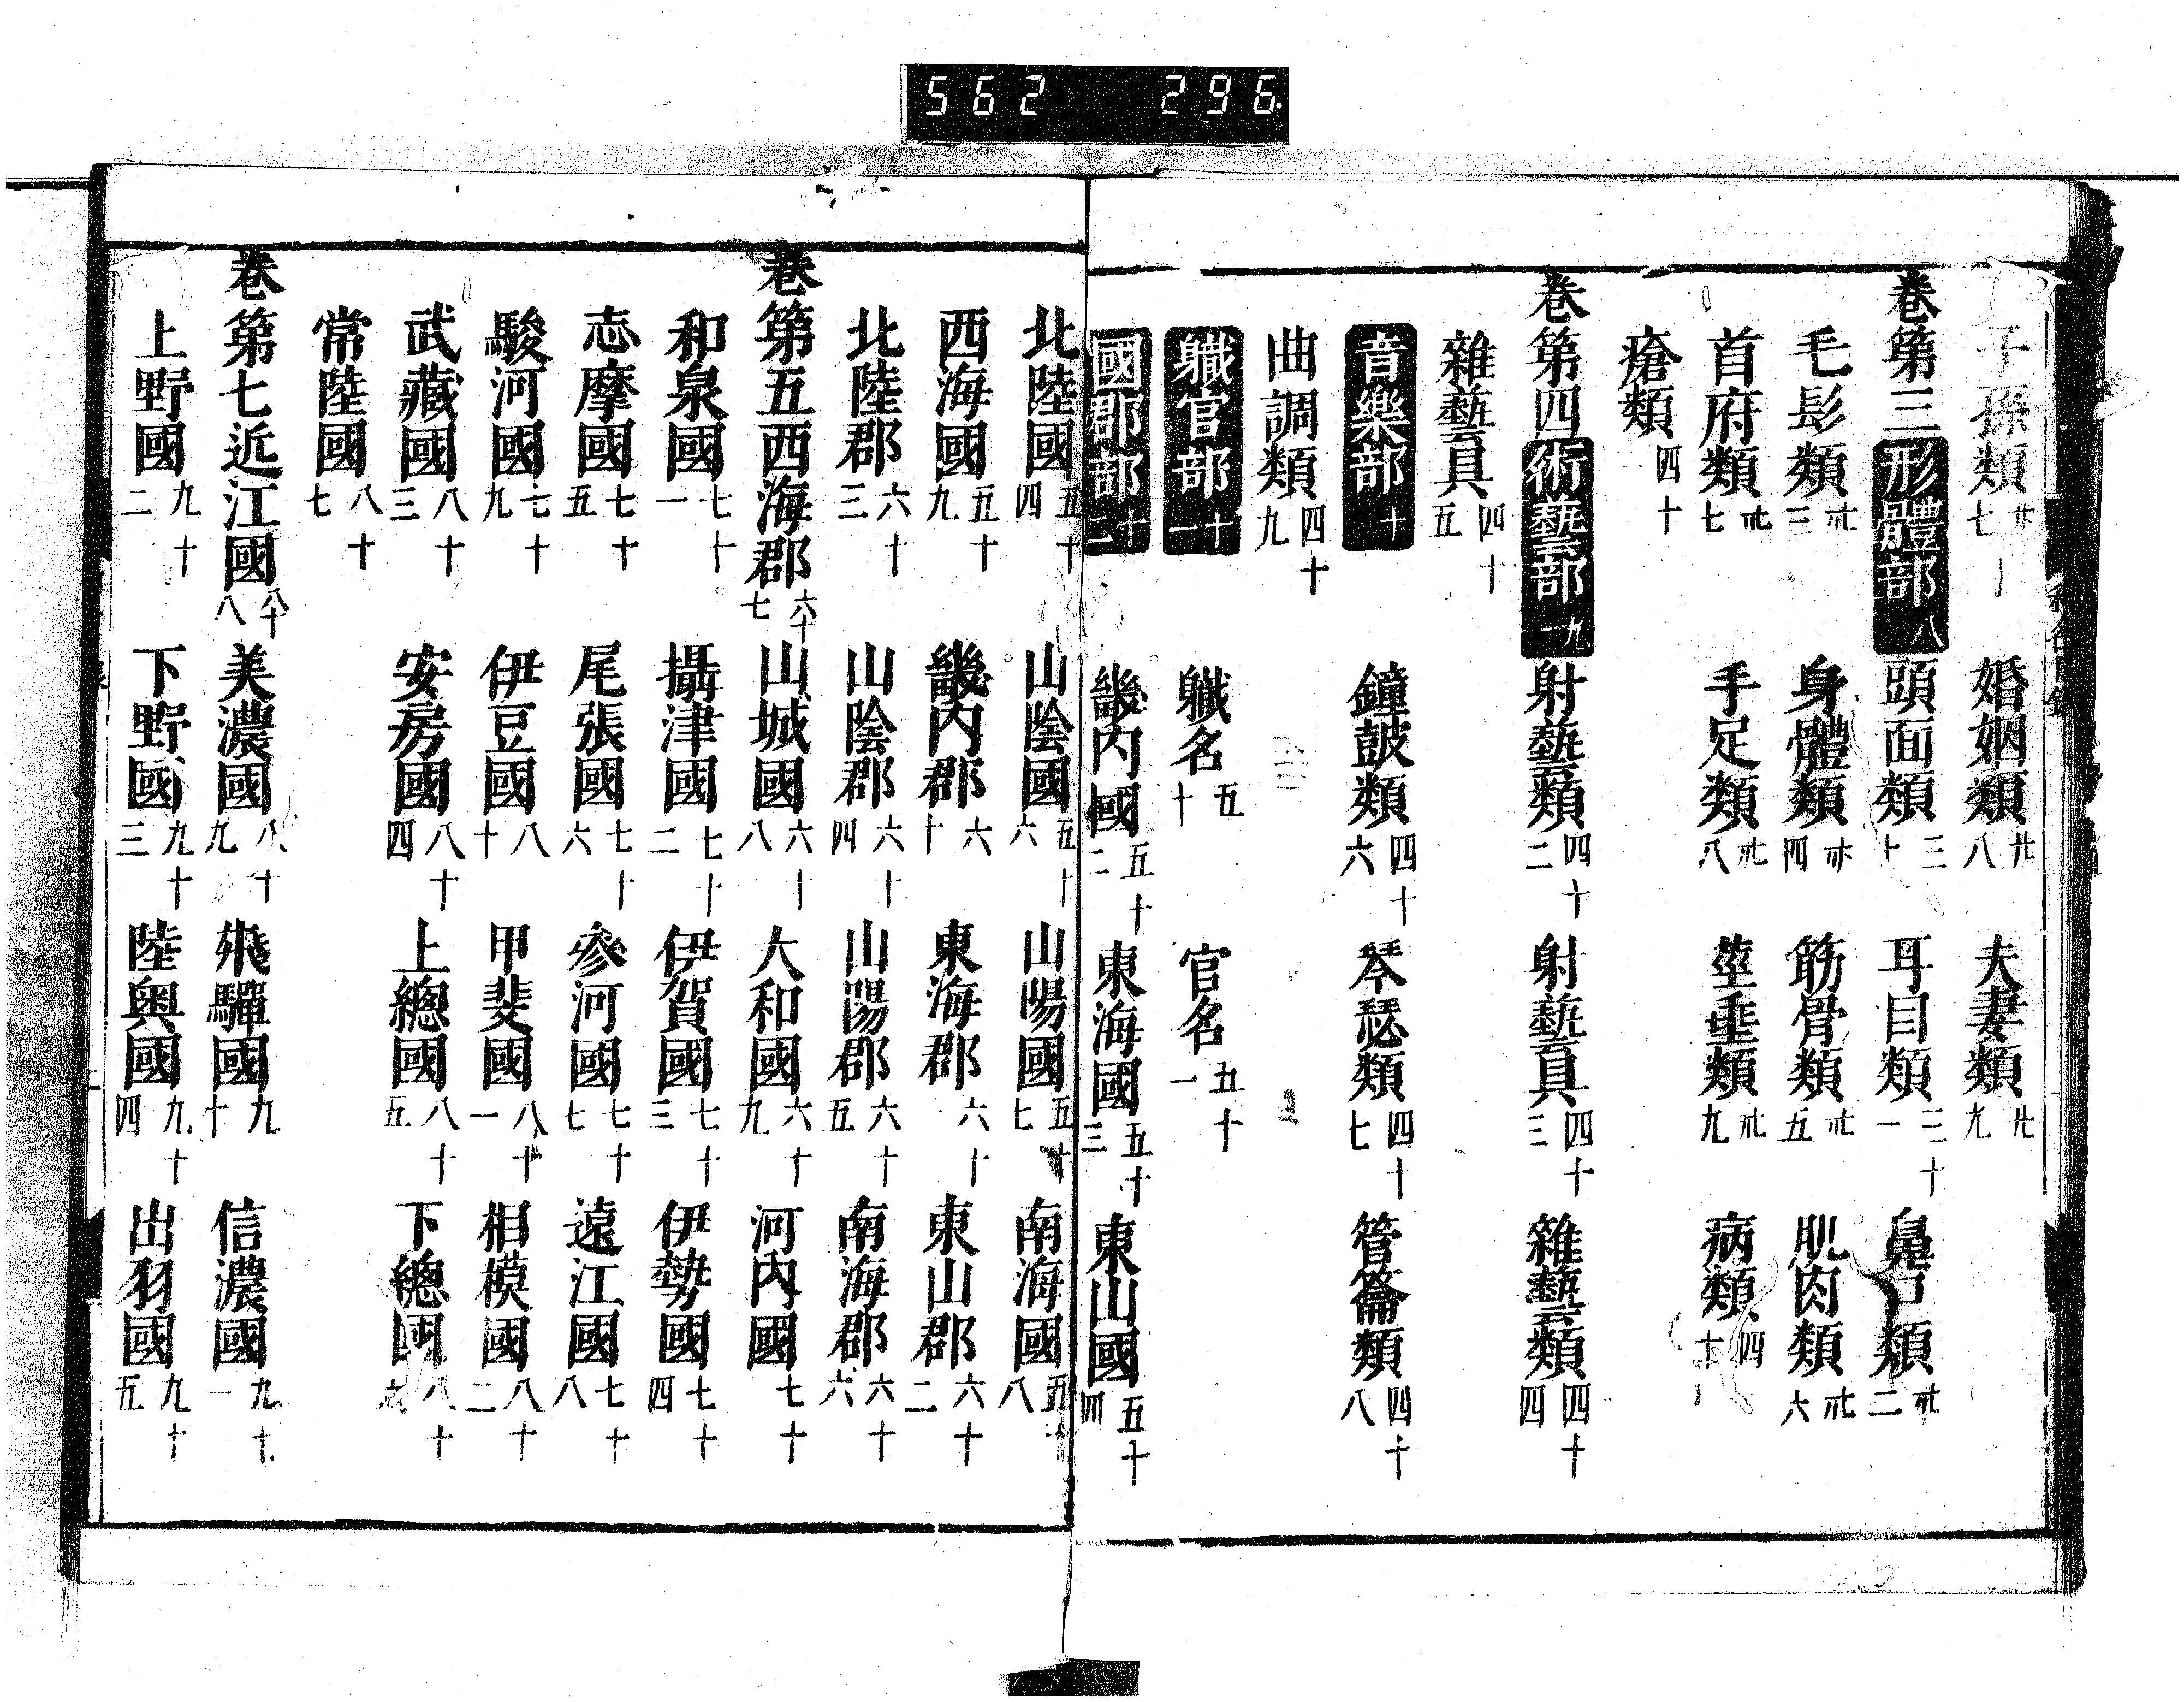 562 296
子孫類廿七 婚姻類廿八 夫妻類廿九
卷第三形體部八 頭面類三十 耳目類三十一 鼻口類卅二
毛髟類卅三 身體類卅四 筋骨類卅五 肌肉類卅六
首府類卅七 手足類卅八 莖垂類卅九 病類四十
瘡類四十一
卷第四術藝部九 射藝類四十二 射藝具四十三 雜藝類四十四
雜藝具四十五
音樂部十 鐘鼓類四十六 琴瑟類四十七 管籥類四十八
曲調類四十九
職官部十一 職名五十 官名五十一
國郡部十二 畿內國五十二 東海國五十三 東山國五十四
北陸國五十四 山陰國五十六 山陽國五十七 南海國五十八
西海國五十九 畿內郡六十 東海郡六十一 東山郡六十二
北陸郡六十三 山陰郡六十四 山陽郡六十五 南海郡六十六
卷第五西海郡六十七 山城國六十八 大和國六十九 河內國七十
和泉國七十一 攝津國七十二 伊賀國七十三 伊勢國七十四
志摩國七十五 尾張國七十六 參河國七十七 遠江國七十八
駿河國七十九 伊豆國八十 甲斐國八十一 相模國八十二
武藏國八十三 安房國八十四 上總國八十五 下總國八十六
常陸國八十七
卷第七近江國八十八 美濃國八十九 飛驒國九十 信濃國九十一
上野國九十二 下野國九十三 陸奧國九十四 出羽國九十五